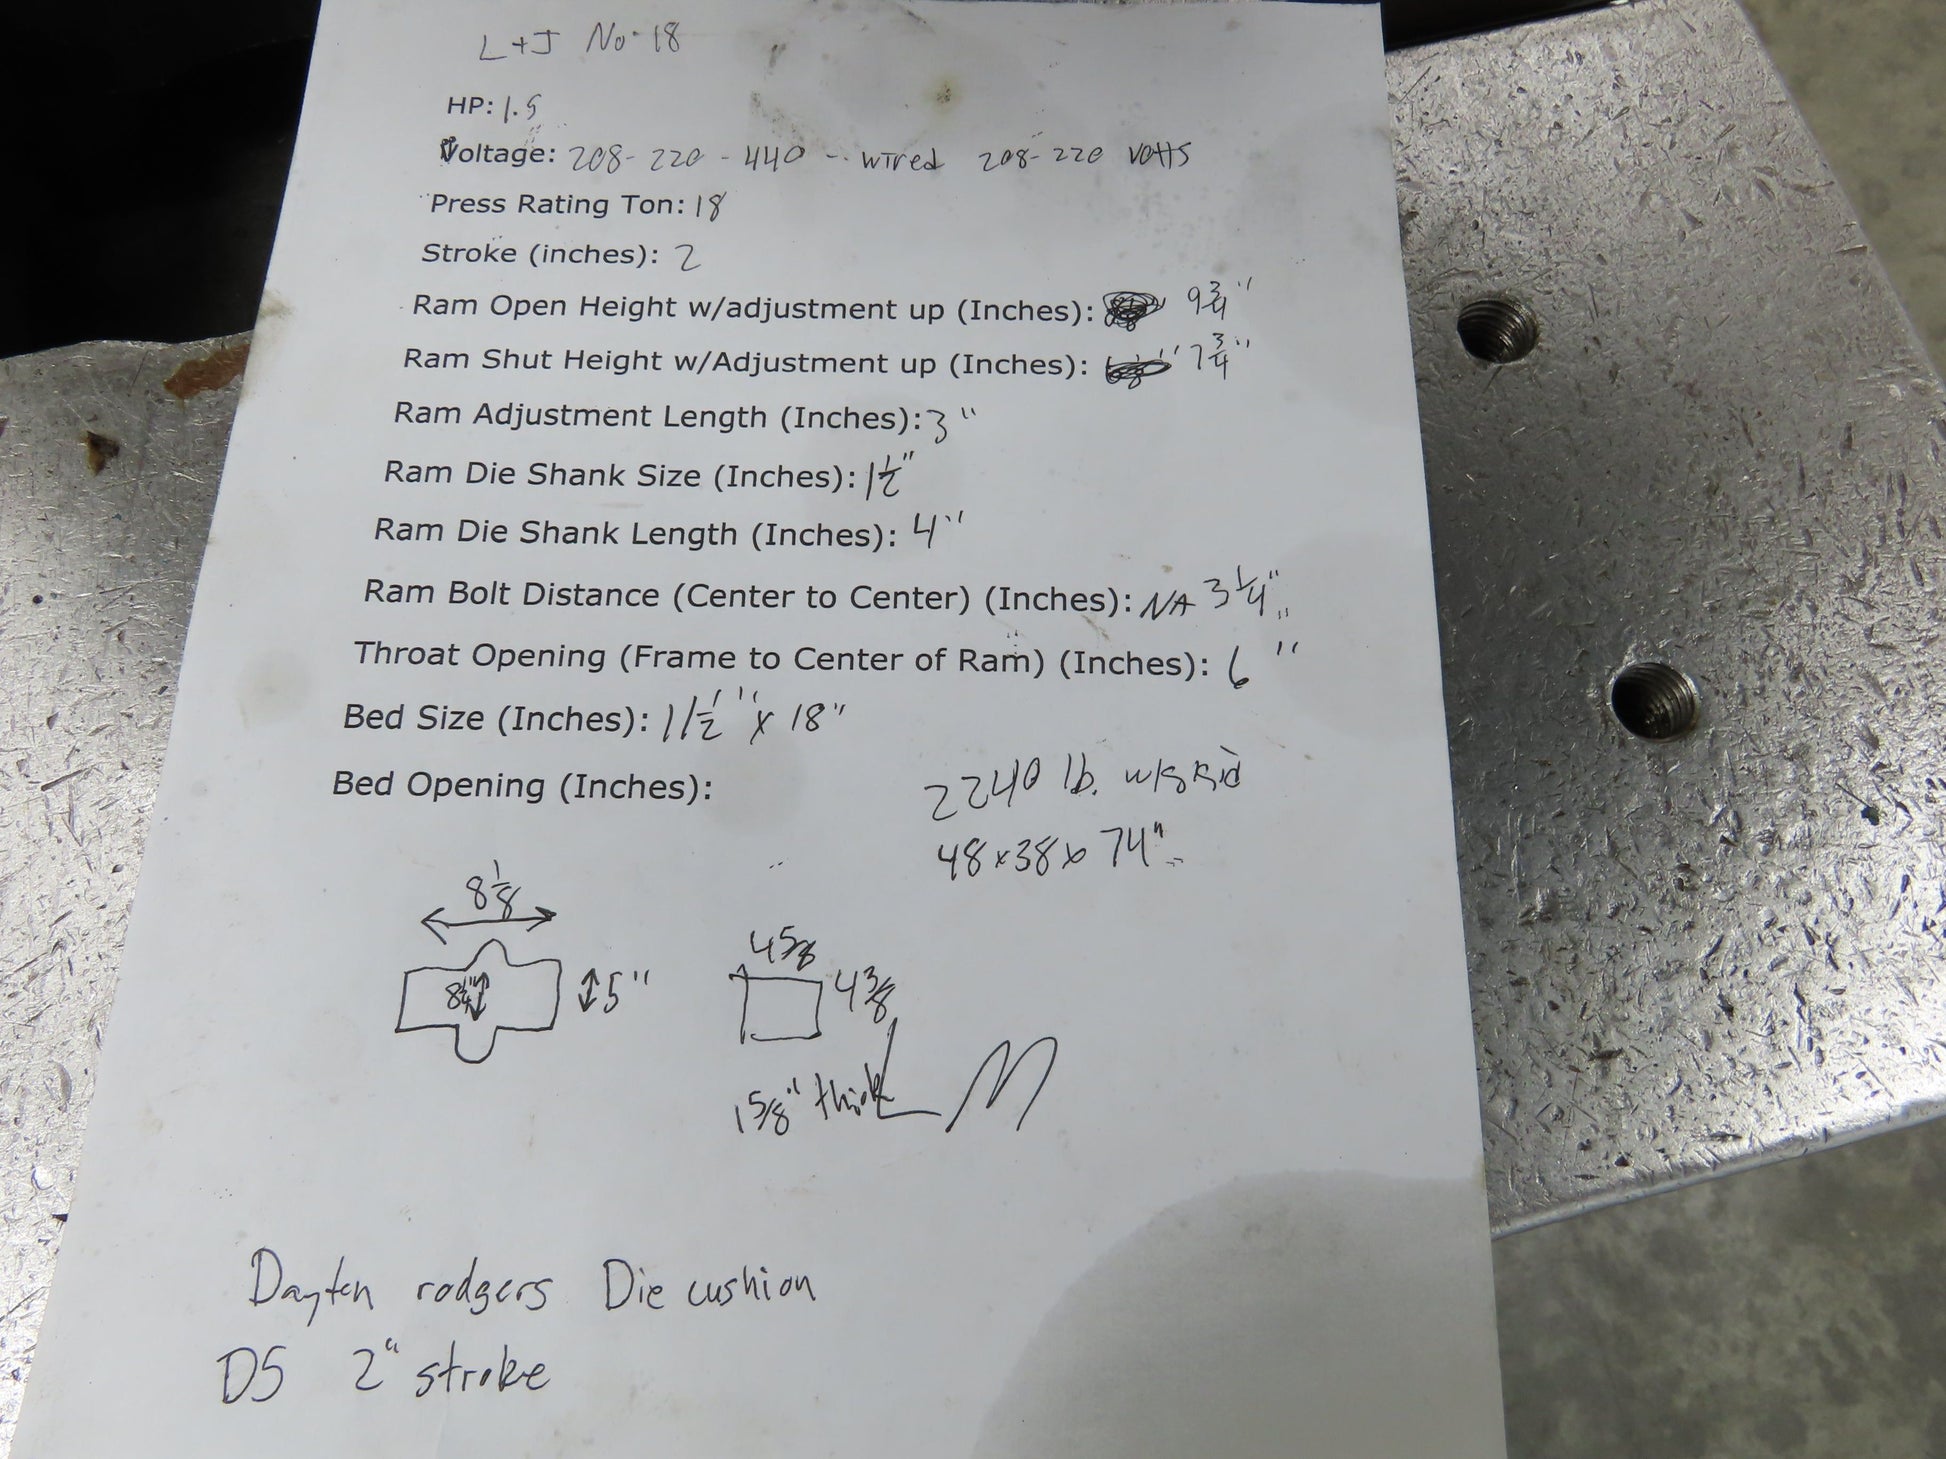 L+J No. 18
HP: 1.5
Voltage: 208-220-440 -- wired 208-220 volts
Press Rating Ton: 18
Stroke (inches): 2
Ram Open Height w/adjustment up (Inches): 9 3/4"
Ram Shut Height w/Adjustment up (Inches): 7 3/4"
Ram Adjustment Length (Inches): 3"
Ram Die Shank Size (Inches): 1 1/2"
Ram Die Shank Length (Inches): 4"
Ram Bolt Distance (Center to Center) (Inches): NA 3 1/4"
Throat Opening (Frame to Center of Ram) (Inches): 6"
Bed Size (Inches): 11 1/2" x 18"
Bed Opening (Inches):
2240 lb. w/skid
48x38x74"
8 1/8
5"
4 5/8
4 3/8
1 5/8" thick
Dayton rodgers Die cushion
D5 2" stroke